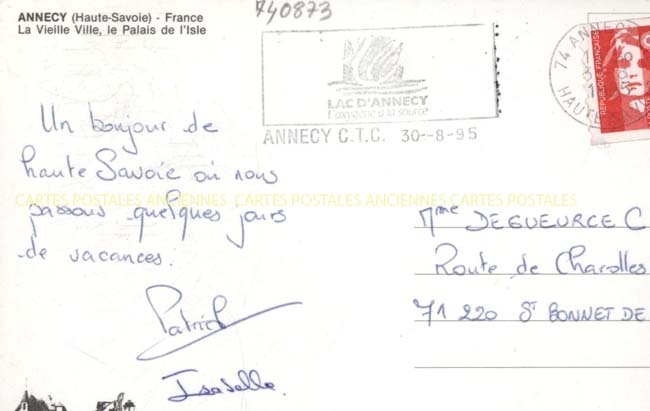 740873
ANNECY (Haute-Savoie) - France
La Vieille Ville, le Palais de l'Isle
LAC D'ANNECY
l'oxygène à la source
ANNECY C.T.C. 30-8-95
74 ANNECY
HAUTE
REPUBLIQUE FRANÇAISE
Un bonjour de
haute Savoie où nous
passons quelques jours
de vacances.
Patrick
Isabelle.
CARTES POSTALES ANCIENNES CARTES POSTALES ANCIENNES CARTES POSTALES
Mme DEGUEURCE C
Route de Charolles
71 220 St BONNET DE